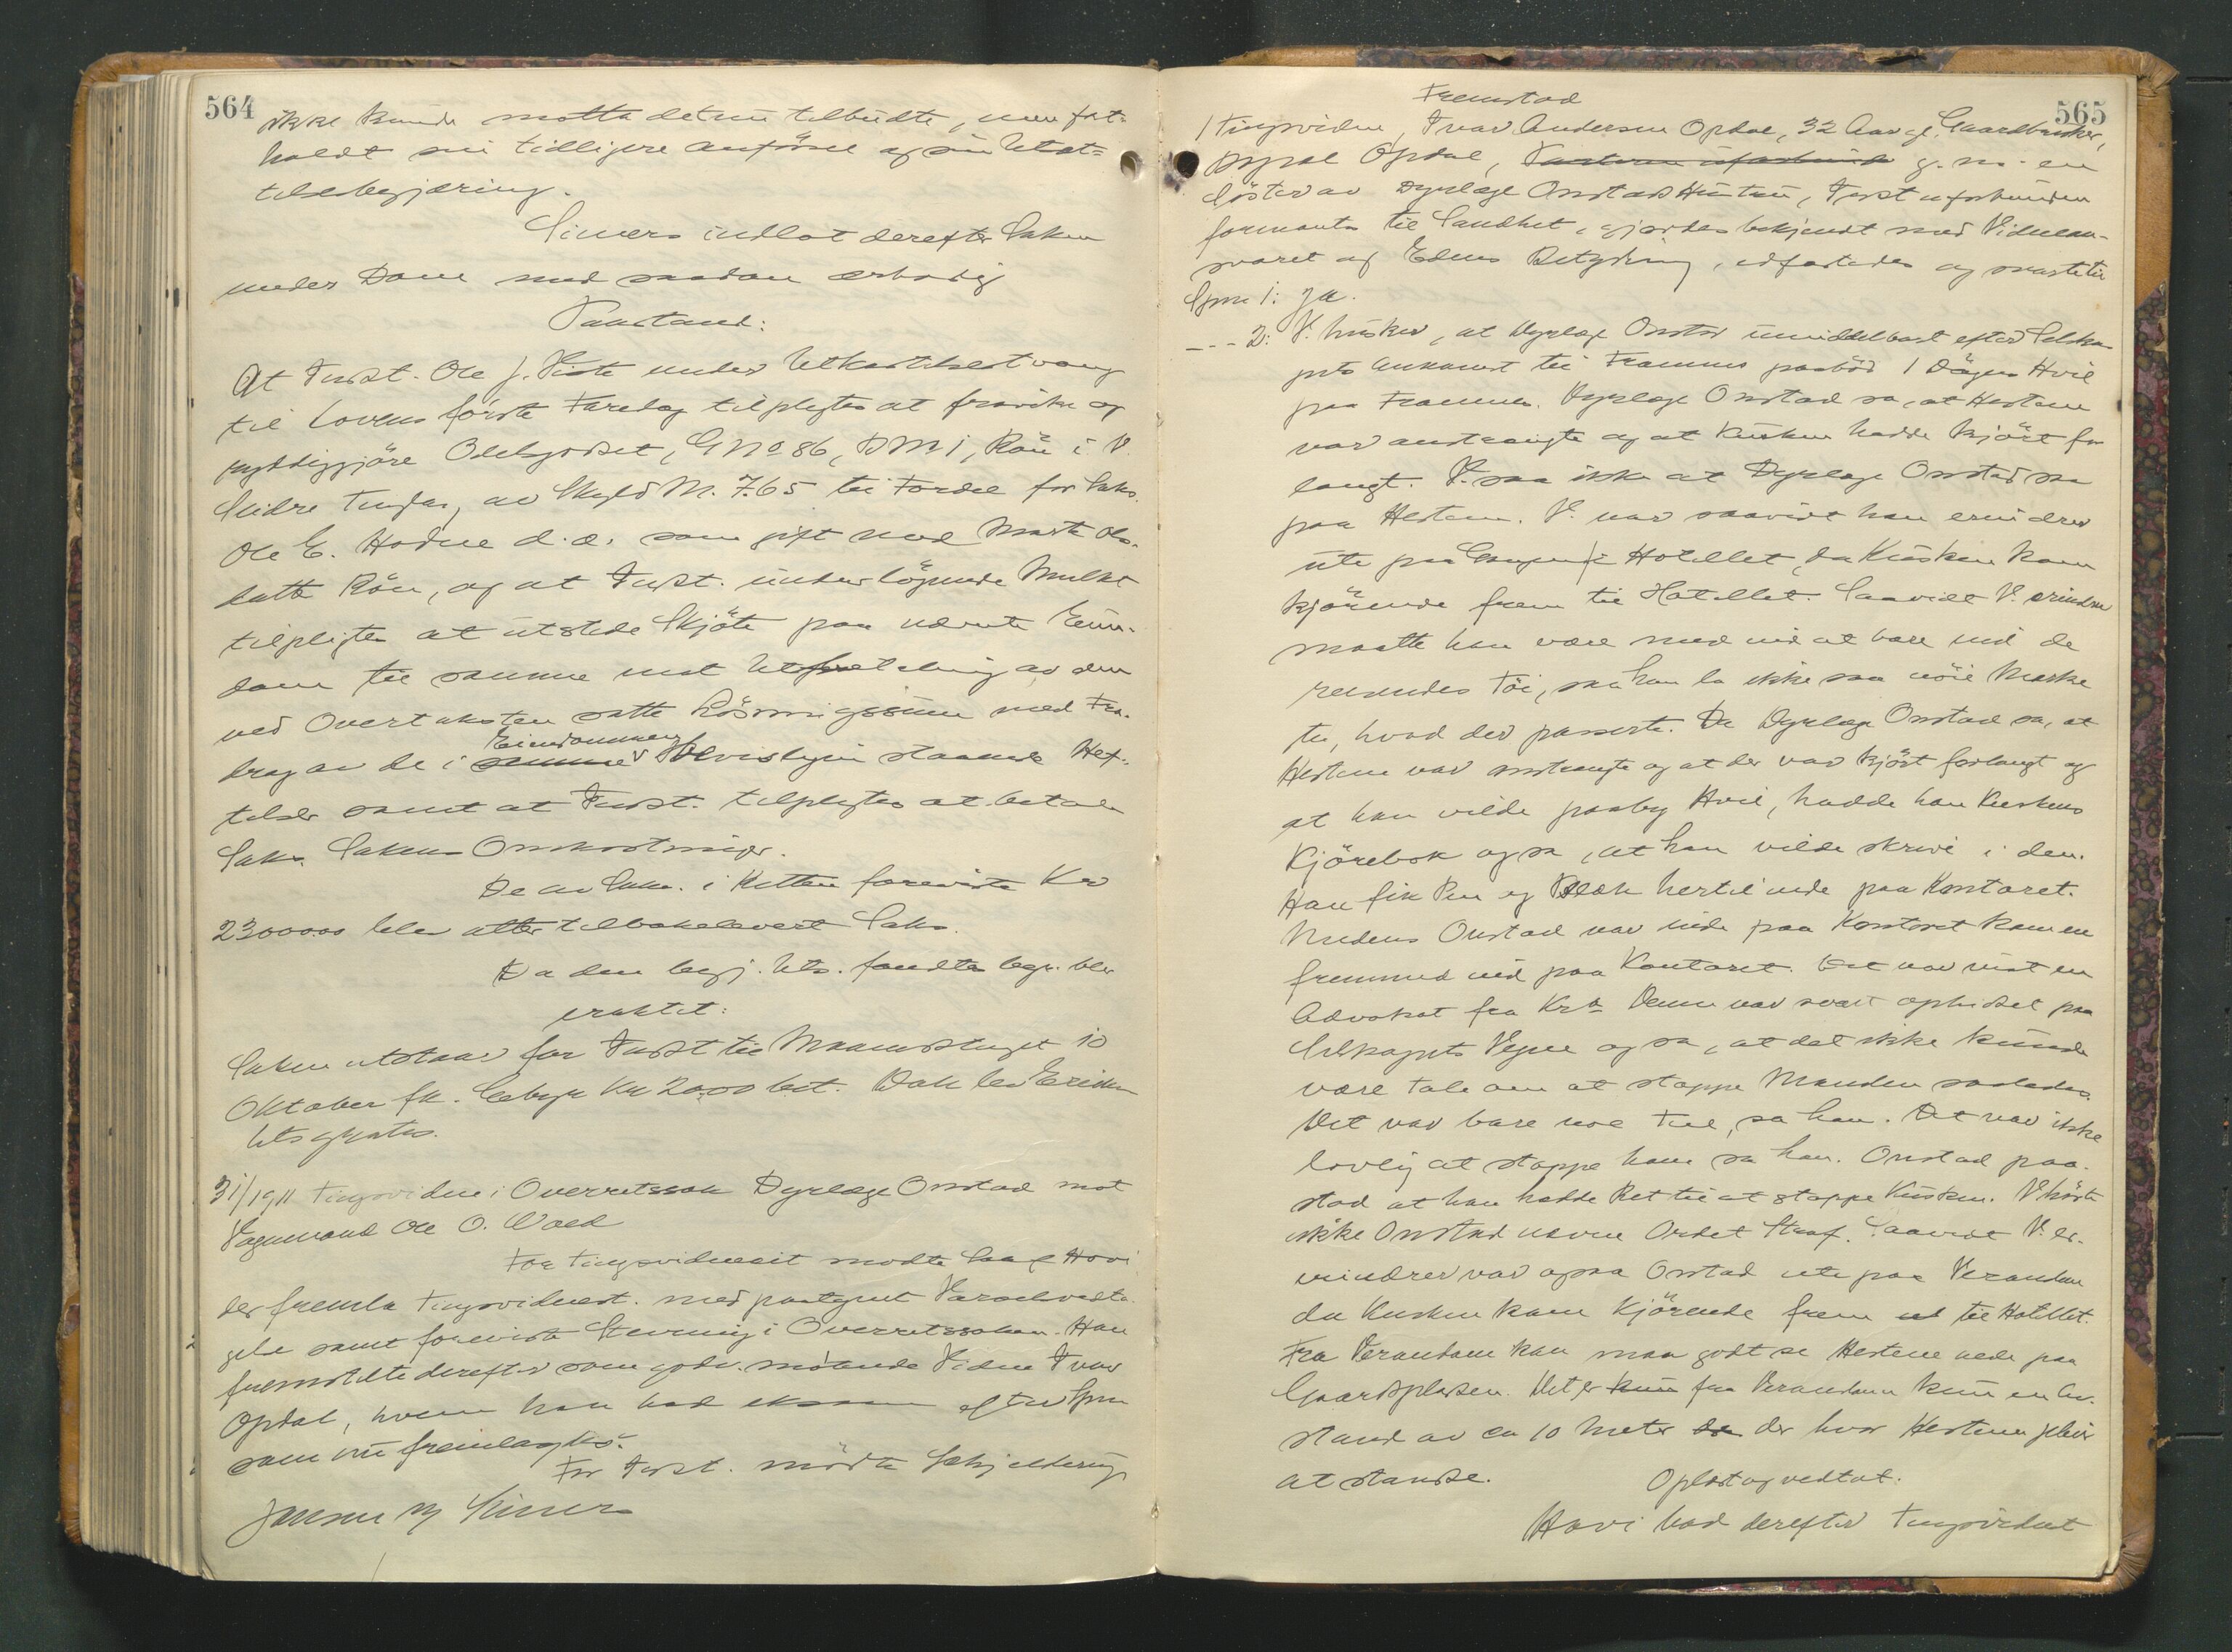 564
ikke kunde motta det nu tilbudte, men fast-
holdt sin tidligere anförsel og sin Utsæt-
telsebegjæring.
Sivers indlot derefter Saken
under Dom med saadan ærbødig
Paastand:
At Indst. Ole J. Viste under Utkastelsestvang
til Lovens første Faredag tilpligtes at fravike og
ryddiggjöre Odelsgodset, GNo 86, BNo 1, Röu i V.
Slidre Tinglag, av Skyld M. 7.65 til Fordel for Saks.
Ole E. Hovdene d.æ. som gift med Marte Ols-
datter Röu, og at Indst. under lögnende Mulkt
tilpligtes at utstede Skjöte paa nævnte Eien-
dom til samme mot Utbetaling av den
ved Overtaksten satte Lösningssum med Fra-
drag av de i Eiendommen bevislig staaende Hef-
telser samt at Indst. tilpligtes at betale
Saks. Sakens Omkostninger.
De av Saks. i Retten foreviste Kr
23000.00 blev atter tilbakelevert Saks.
Da den begj. Uts. fandtes begr. blev
eraktet:
Saken utstaar for Indst til Maanedstinget 10
Oktober fk. Gebyr Kr 20.00 bet.
Uts
31/1911 Tingsvidne i Overretssak Dyrlæge Onstad mot
Vognmand Ole O. Wold
For Tingsvidnesit mødte Sagf Hovi
der fremla Tingsvidnest. med paategnet Varselsvedta-
gelse samt foreviste Stevning i Overretssaken. Han
fremstilte derefter som godv. mötende Vidne Ivar
Opdal, hvem han bad eksam. efter Spm
som nu fremlagdes.
For Indst. mödte Schjelderup
Jensen for Sivers
565
Fremstod
1 Tingsvidne, Ivar Andersen Opdal, 32 Aar gl. Gaardbruker,
Opdal, g. m. en
Söster av Dyrlæge Onstads Hustru, Indst uforbunden
formantes til Sandhet, gjordes bekjendt med Vidnean-
svaret og Edens Betydning, edfæstedes og svarte til
Spm 1: Ja.
- - - 2: V. husker, at Dyrlæge Onstad umiddelbart efter Selska-
pets Ankomst til Framnes paaböd 1 Dögns Hvil
paa Framnes. Dyrlæge Onstad sa, at Hestene
var anstrengte og at Kusken hadde kjört for
langt. V. saa ikke at Dyrlæge Onstad saa
paa Hestene. V. var saavidt han erindrer
ute paa Gangen i Hotellet, da Kusken kom
kjörende frem til Hotellet. Saavidt V. erindrer
maatte han være med ind at bære ind de
reisendes Töi, saa han la ikke saa nöie Merke
til, hvad der passerte. Da Dyrlæge Onstad sa, at
Hestene var anstrengte og at der var kjört forlangt og
at han vilde paaby Hvil, hadde han Kuskens
Kjörebok og sa, at han vilde skrive i den.
Han fik Pen og Blæk hertil inde paa Kontoret.
Medens Onstad var inde paa Kontoret kom en
fremmed ind paa Kontoret. Det var vist en
Advokat fra Kr.a Denne var svært ophidset paa
Selskapets Vegne og sa, at det ikke kunde
være Tale om at stoppe Manden saaledes.
Det var bare noe Tul, sa han. Det var ikke
lovlig at stoppe ham sa han. Onstad paa-
stod at han hadde Ret til at stoppe Kusken. V hörte
ikke Onstad nævne Ordet Straf. Saavidt V. er-
indrer var ogsaa Onstad ute paa Verandaen
da Kusken kom kjörende frem til Hotellet.
Fra Verandaen kan man godt se Hestene nede paa
Gaardsplassen. Det er fra Verandaen kun en Av-
stand av ca 10 Meter der hvor Hestene pleier
at standse. Oplæst og vedtat.
Hovi bad derefter Tingsvidnet